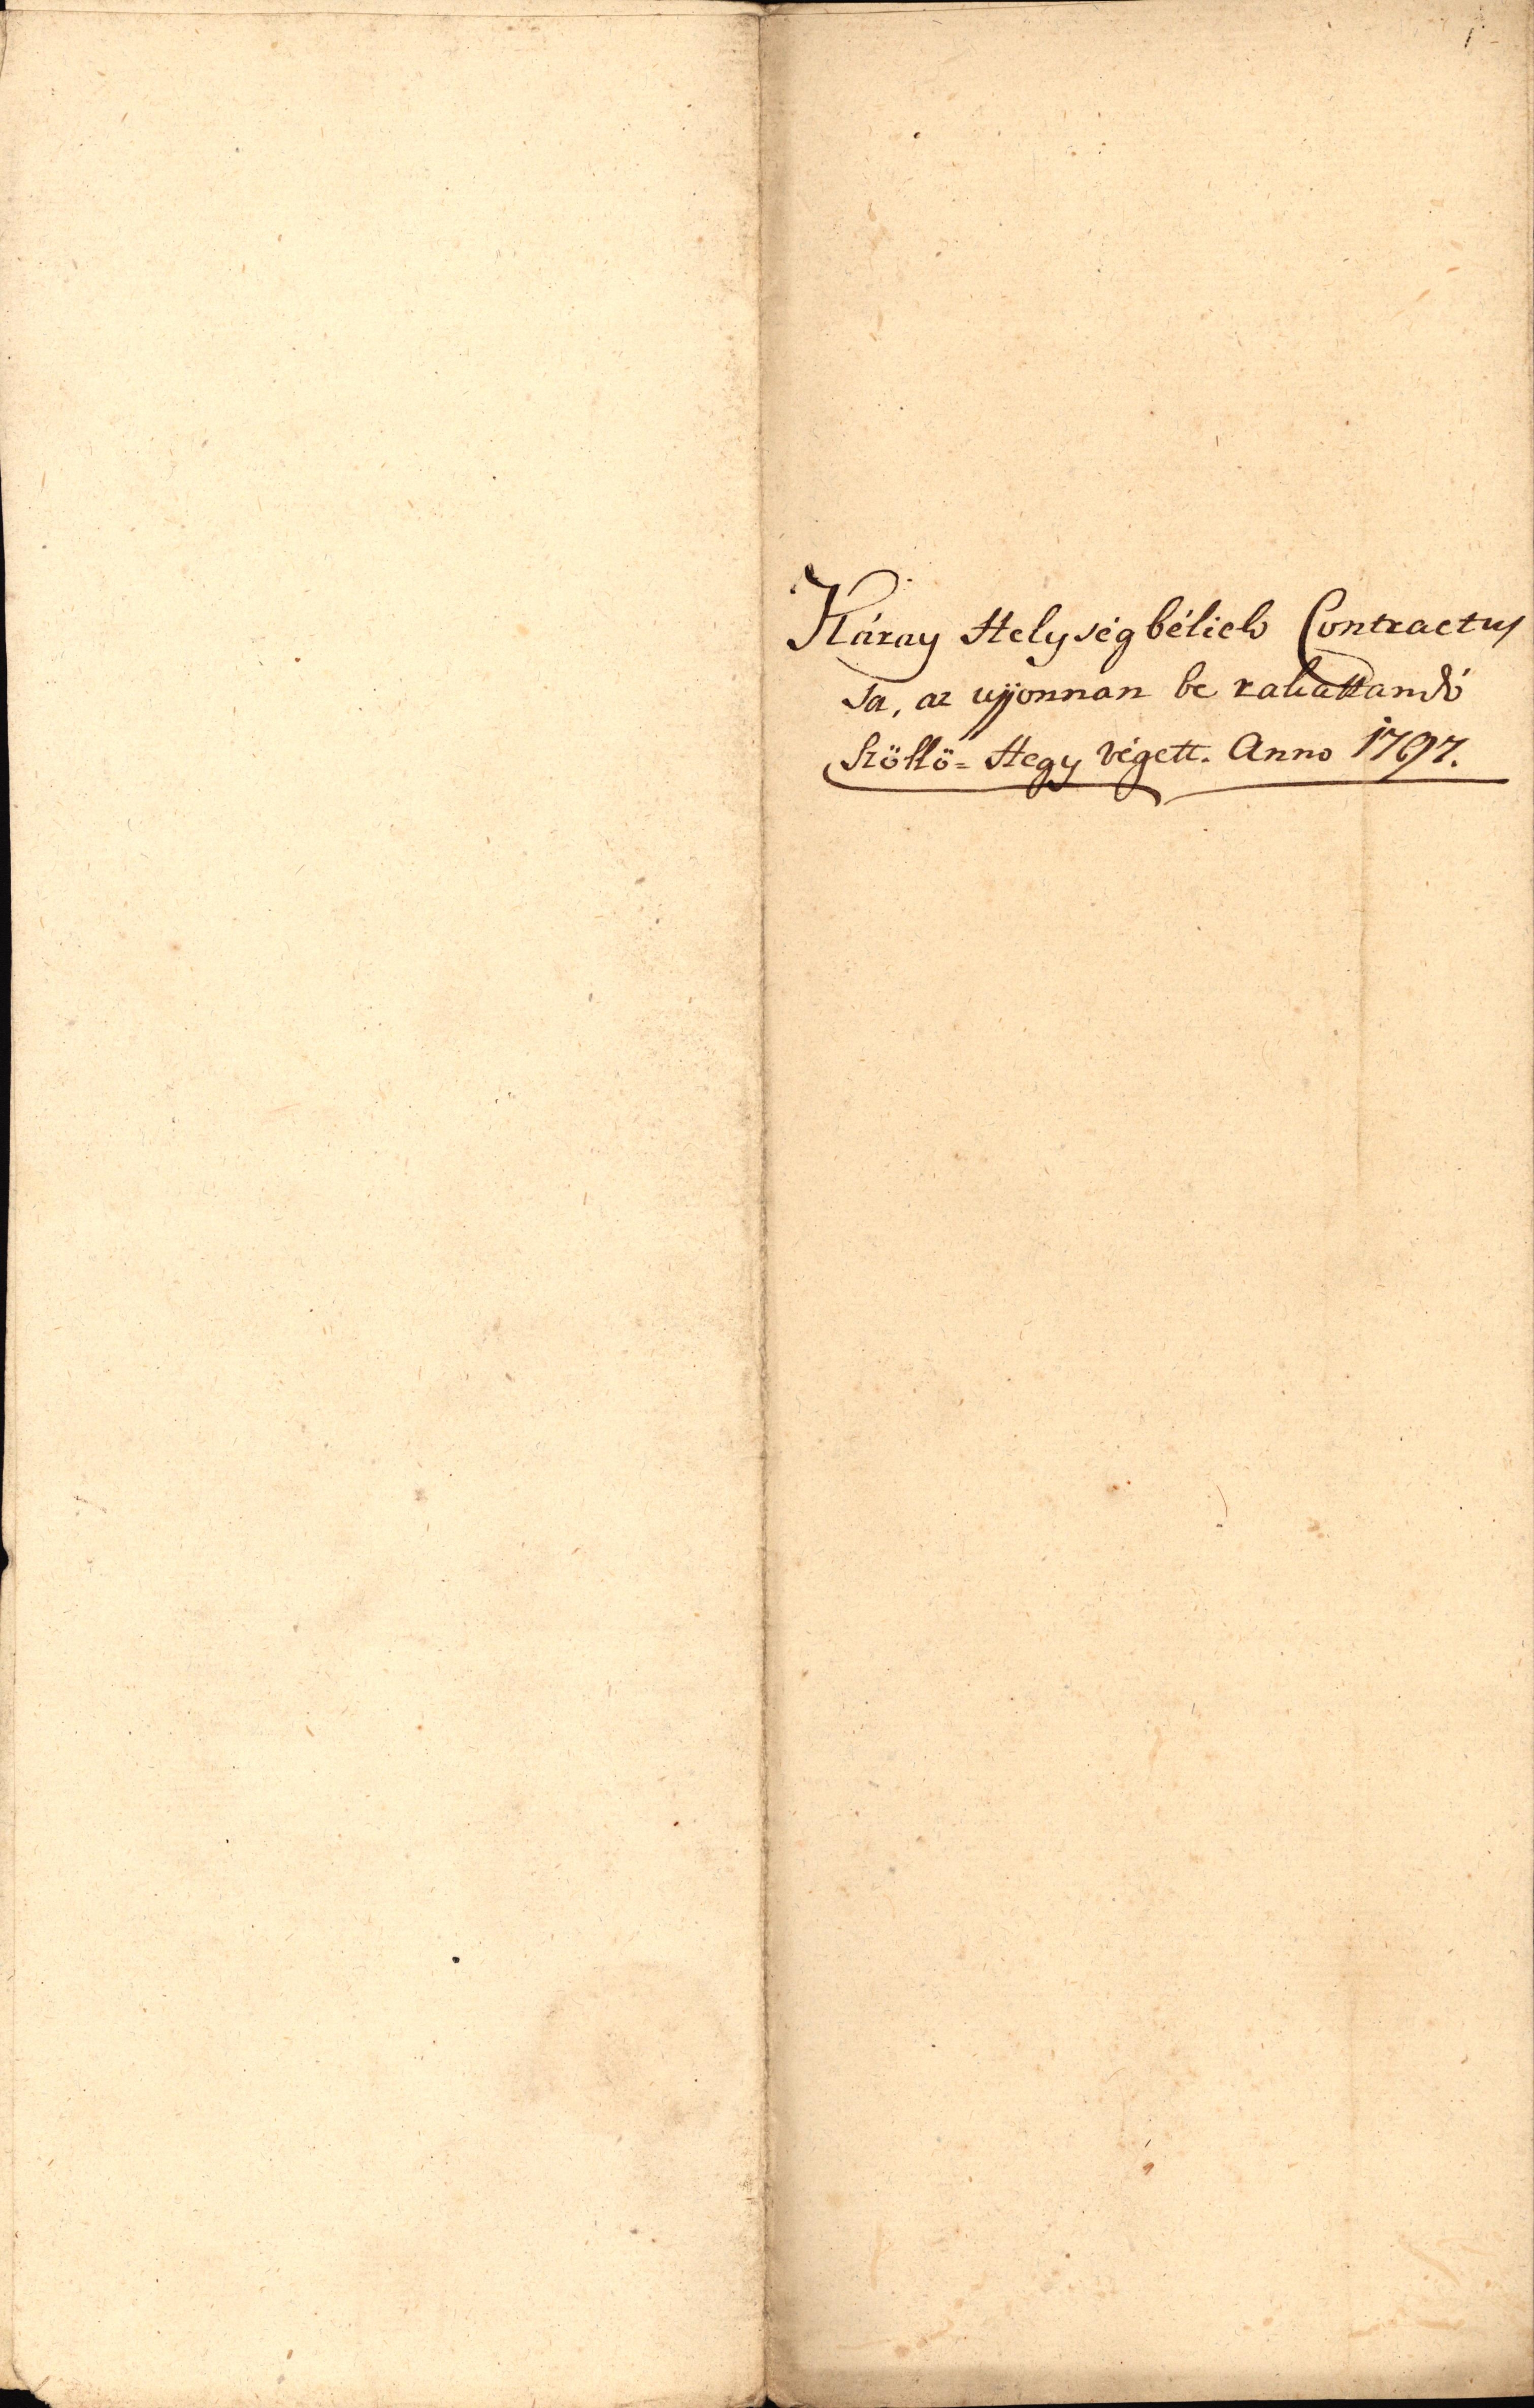 Káray Helységbéliek Contractus
sa, az ujjonnan be rakattandó
Szöllö= Hegy végett. Anno 1797.